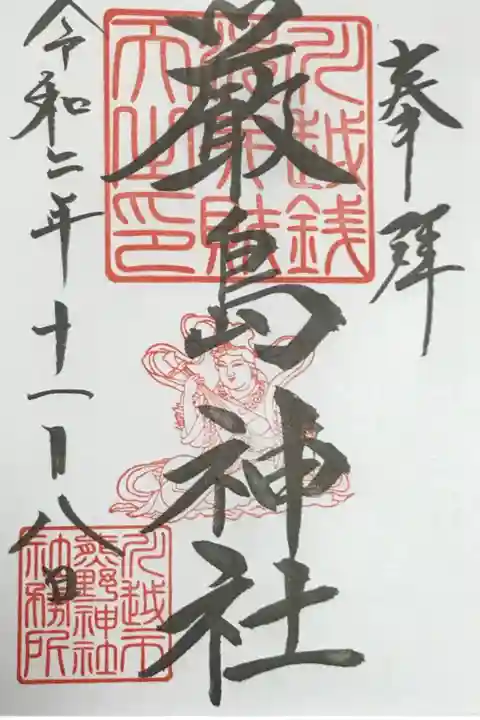 奉拝
厳島神社
令和二年十一月八日
川越銭
天之印
川越市
熊野神社
社務所